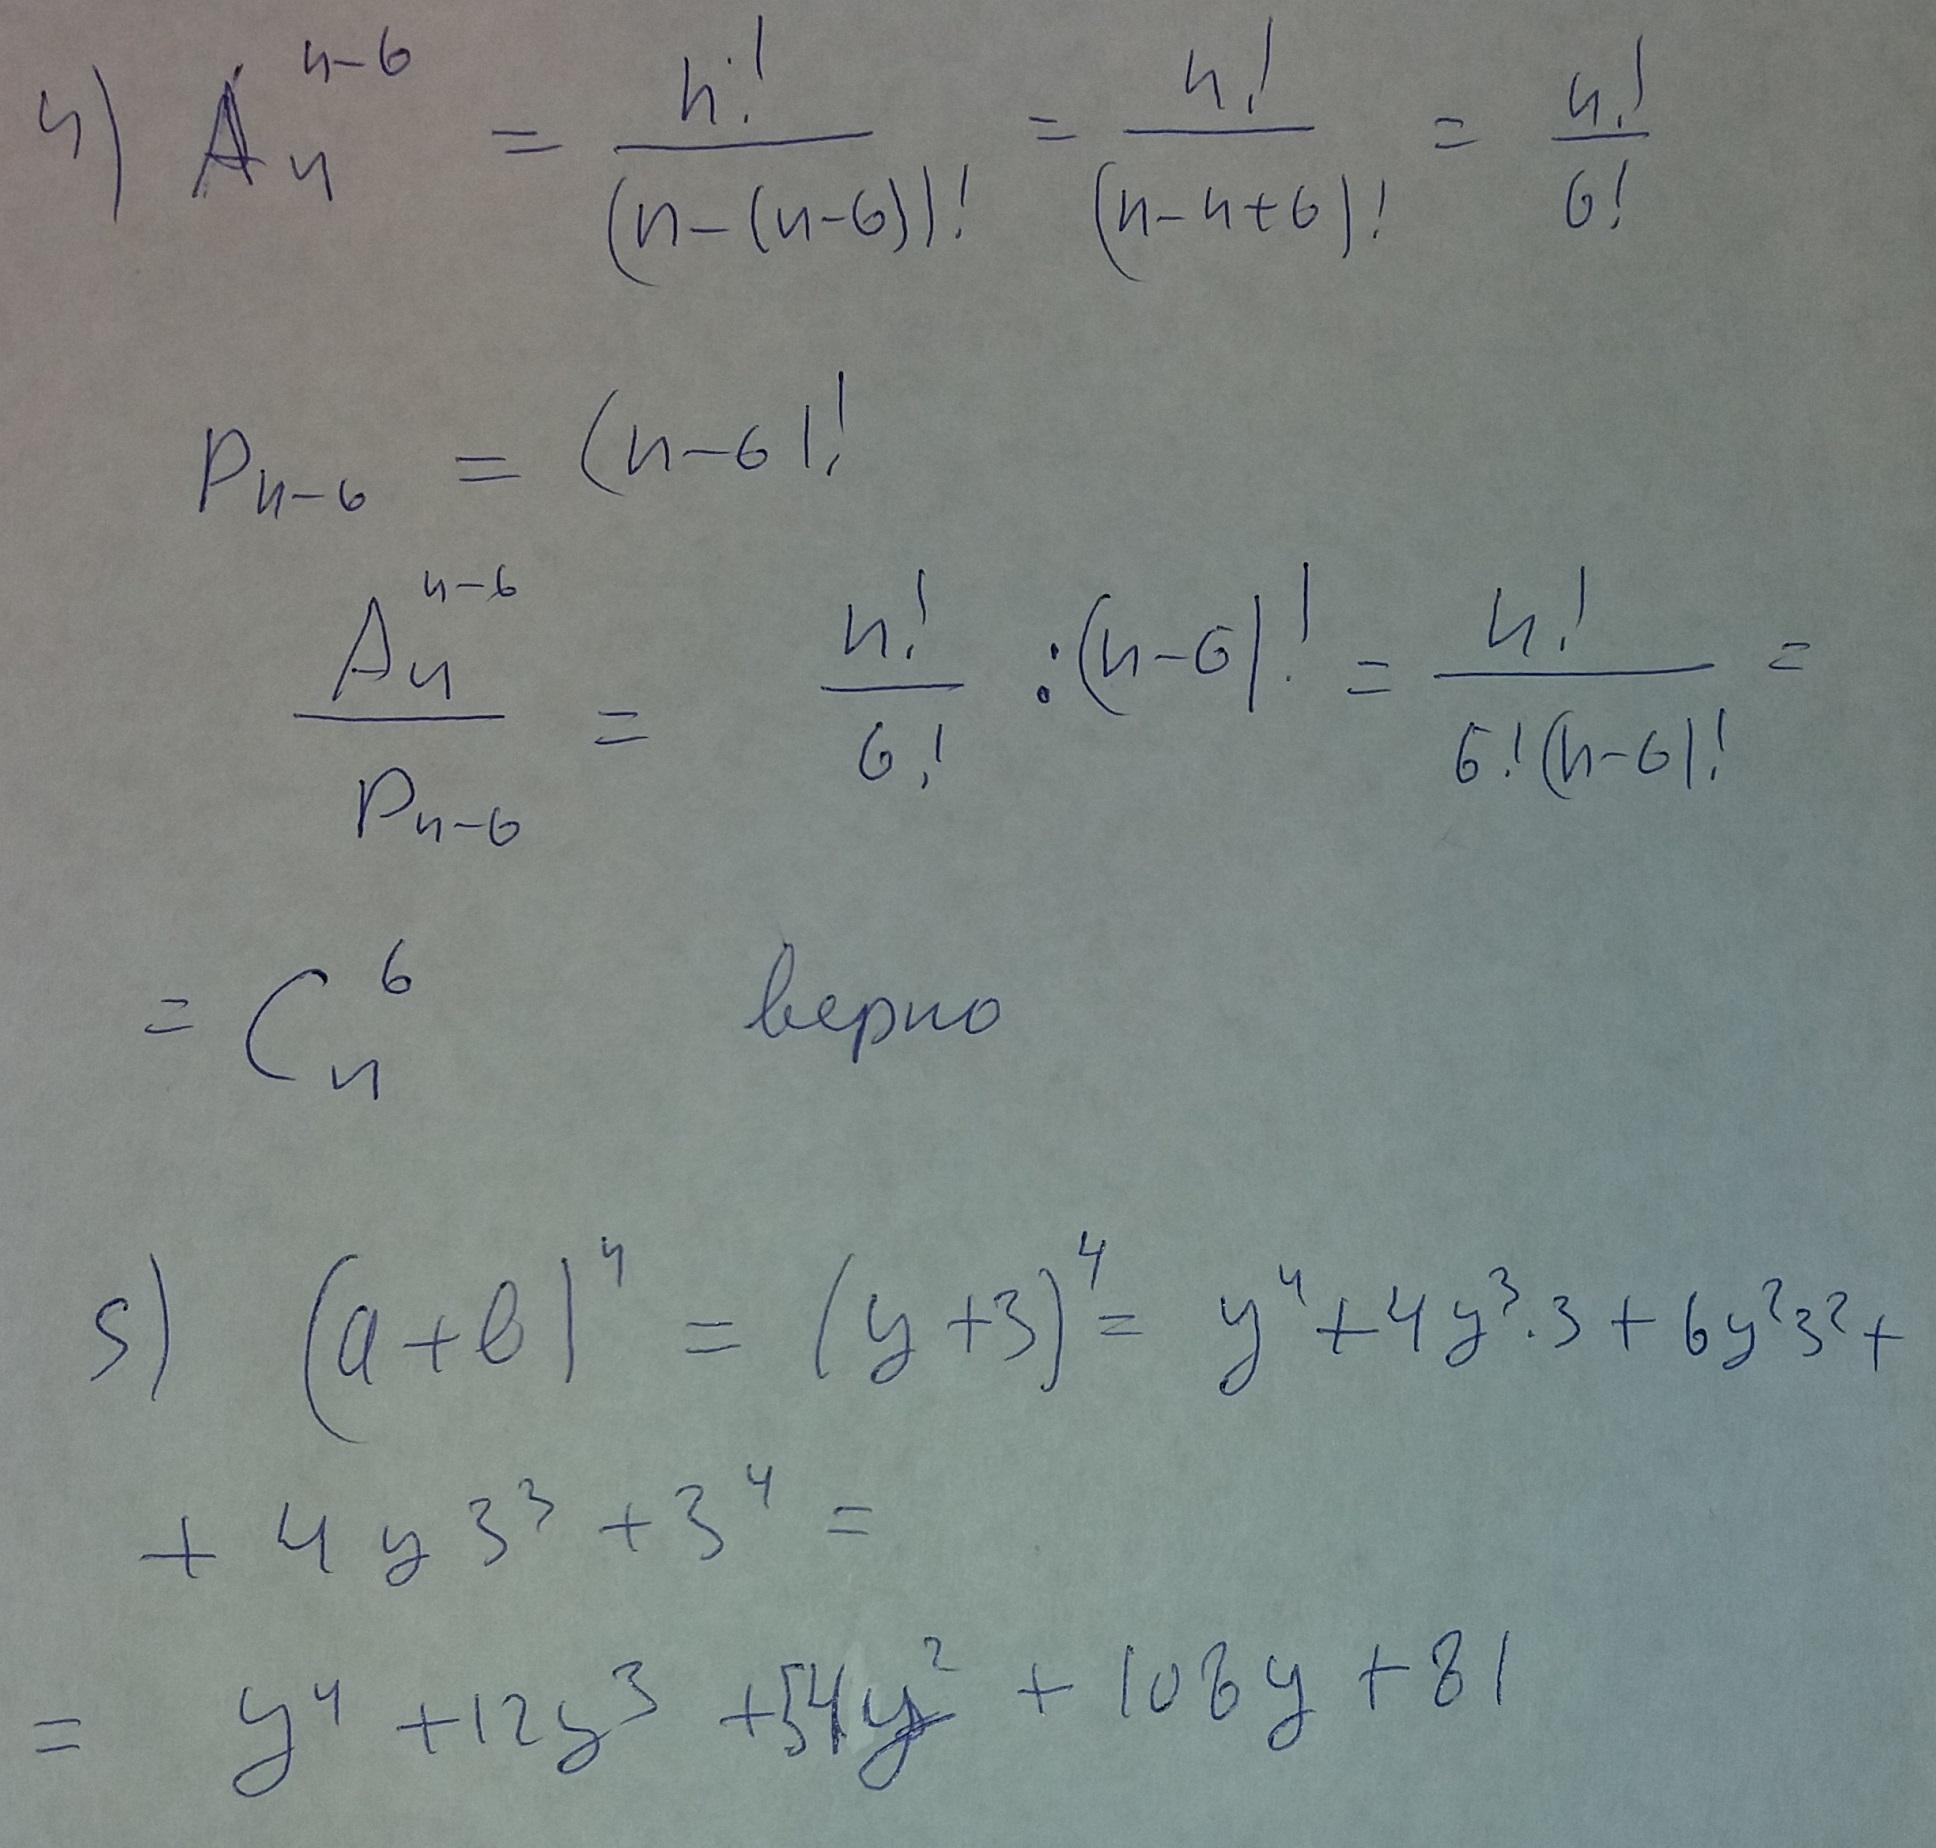 4) Aₙⁿ⁻⁶ = n!/(n-(n-6))! = n!/(n-n+6)! = n!/6!
Pₙ₋₆ = (n-6)!
Aₙⁿ⁻⁶/Pₙ₋₆ = n!/6! : (n-6)! = n!/6!(n-6)! =
= Cₙ⁶ верно
5) (a+b)⁴ = (y+3)⁴ = y⁴+4y³·3+6y²3²+
+ 4y3³+3⁴ =
= y⁴+12y³+54y²+108y+81